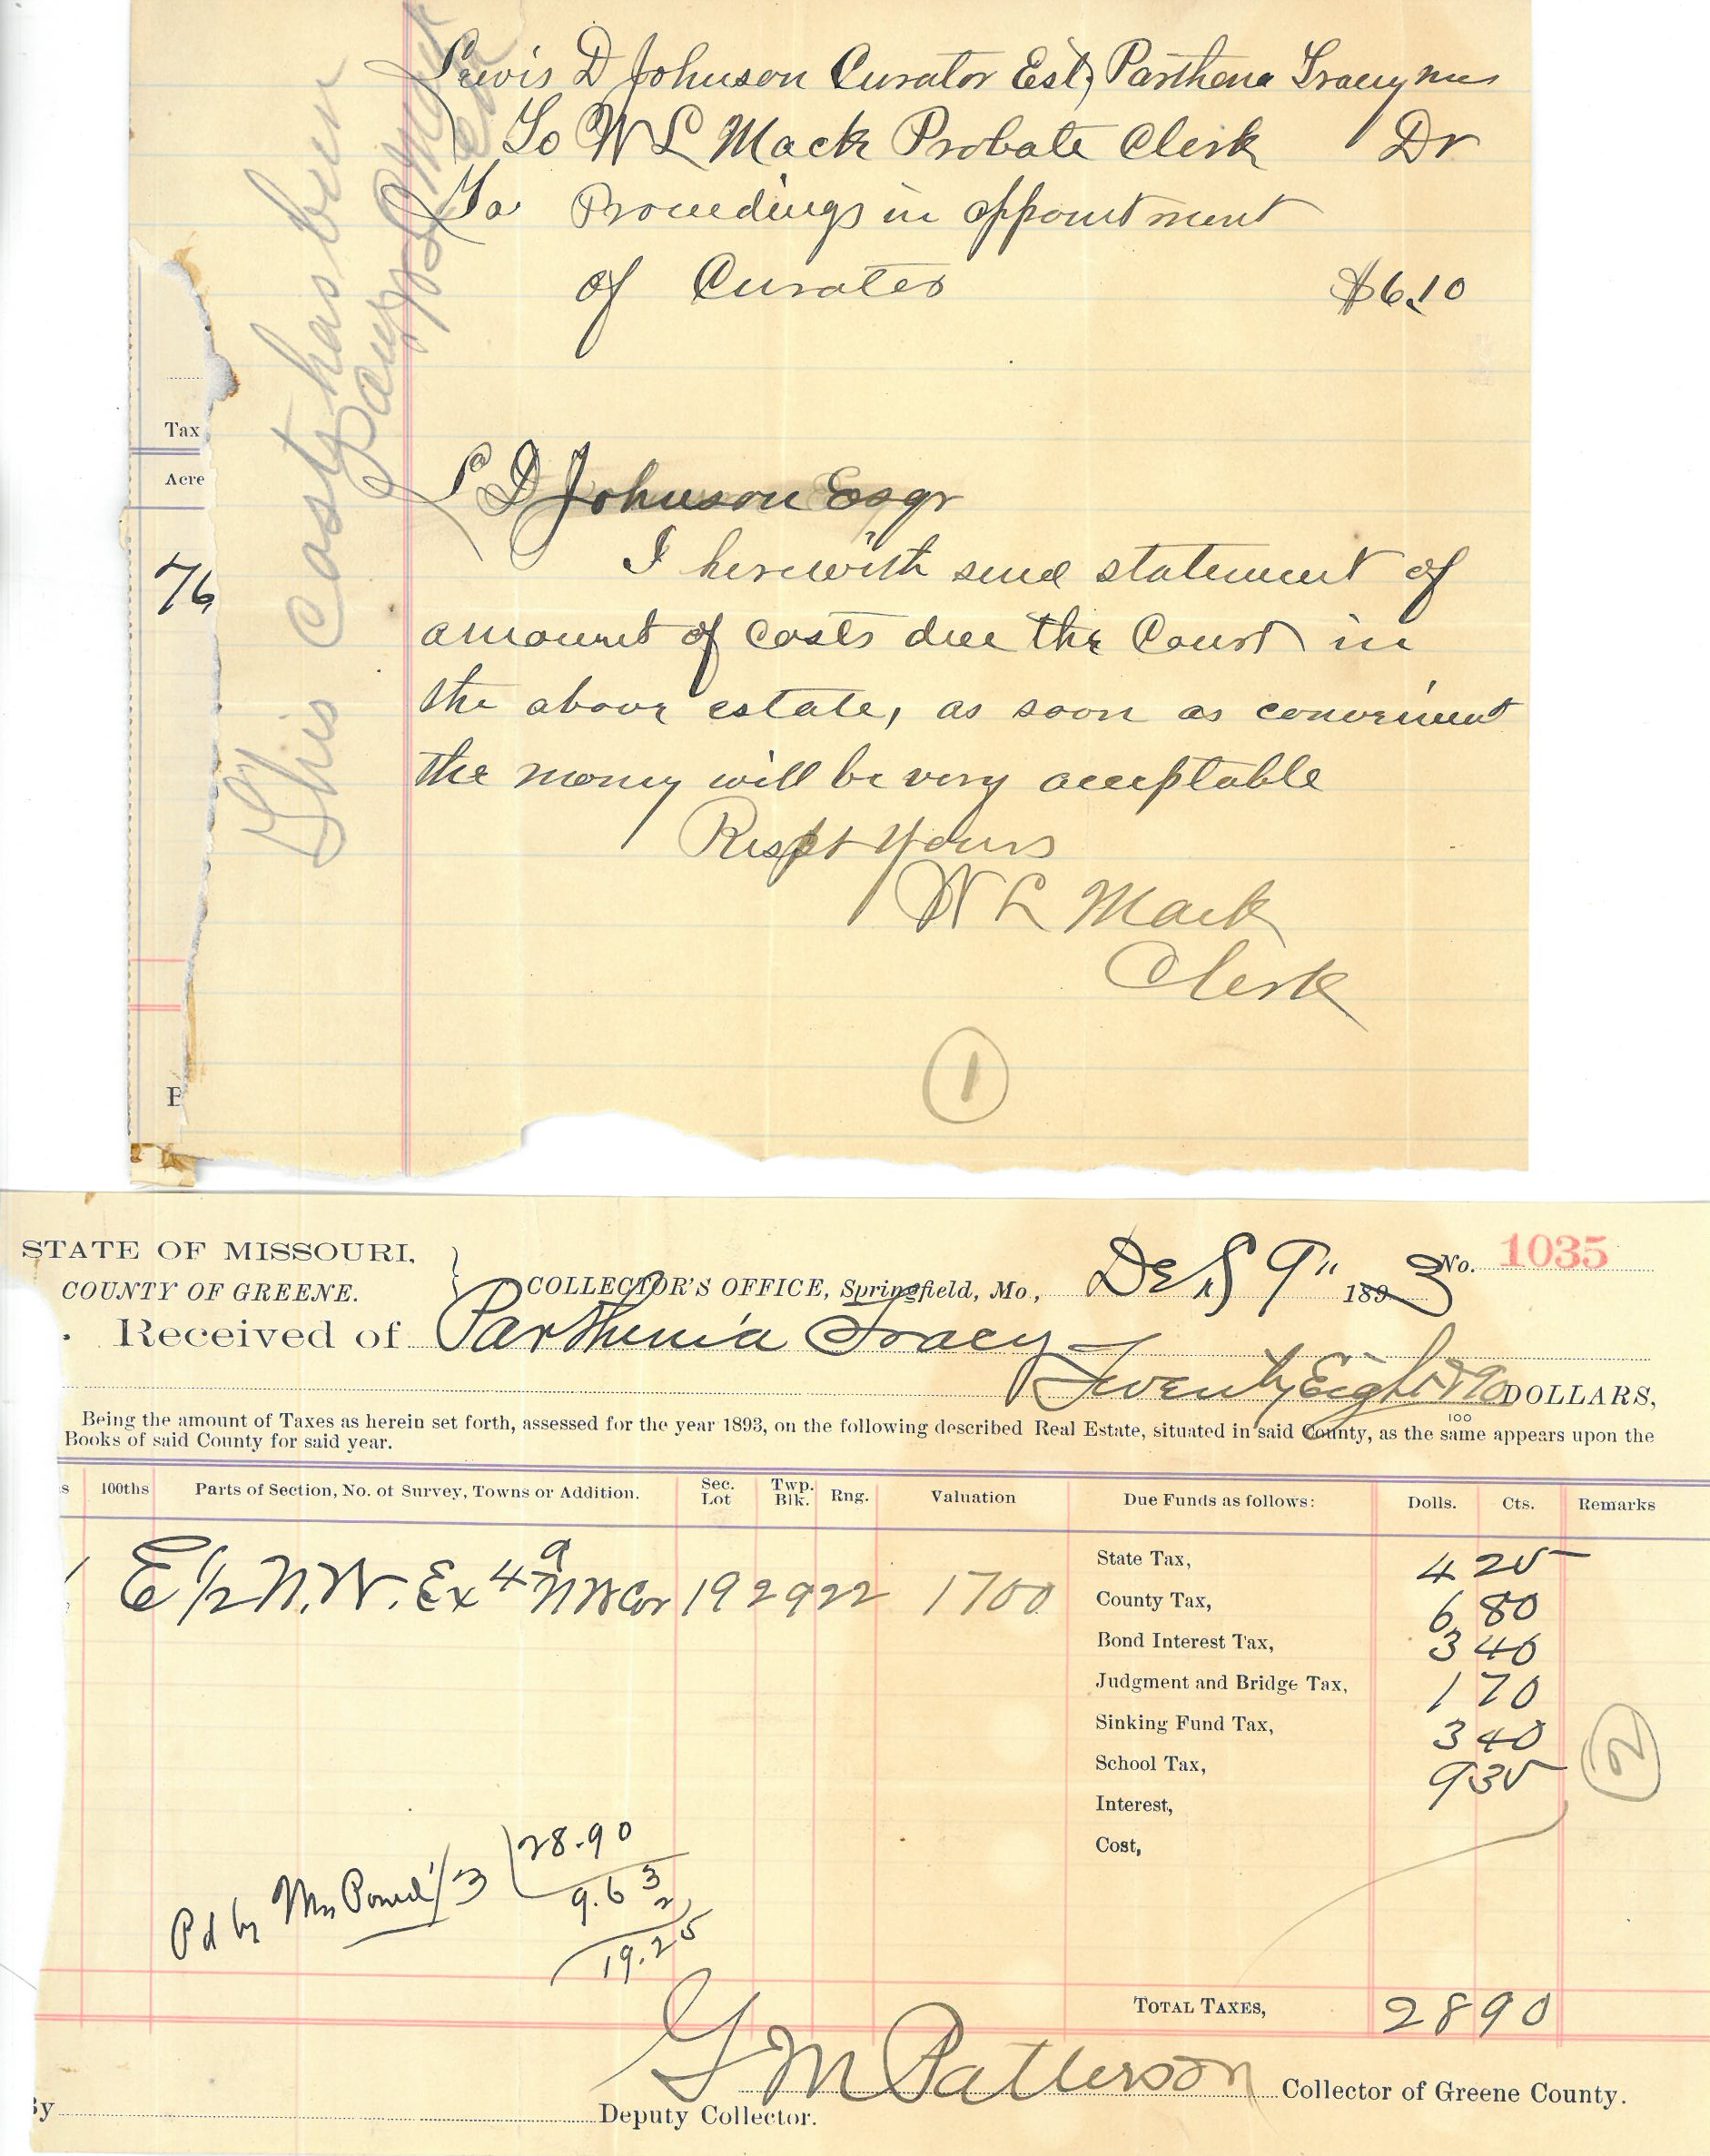 Lewis D Johnson Curator Est, Parthena Tracy
To W L Mack Probate Clerk Dr
To Proceedings in appointment
of Curator $6.10
This Cost has been
Tax
Acre
76
L D Johnson Esqr
I herewith send statement of
amount of costs due the Court in
the above estate, as soon as convenient
the money will be very acceptable
Respt Yours
W L Mack
Clerk
1
E
STATE OF MISSOURI,
COUNTY OF GREENE.
COLLECTOR'S OFFICE, Springfield, Mo., 9" 1893 No. 1035
Received of Parthenia Tracy
Twenty Eight & 90/100 DOLLARS,
Being the amount of Taxes as herein set forth, assessed for the year 1893, on the following described Real Estate, situated in said County, as the same appears upon the
Books of said County for said year.
s 100ths Parts of Section, No. of Survey, Towns or Addition. Sec. Lot Twp. Blk. Rng. Valuation Due Funds as follows: Dolls. Cts. Remarks
E 1/2 N.W. Ex 4a NW Cor 19 29 22 1700
State Tax, 4 25
County Tax, 6 80
Bond Interest Tax, 3 40
Judgment and Bridge Tax, 1 70
Sinking Fund Tax, 3 40
School Tax, 9 35
2
Interest,
Cost,
Pd by 1/3 28.90
9.63
2
19.25
TOTAL TAXES, 28 90
G M Patterson Collector of Greene County.
By Deputy Collector.